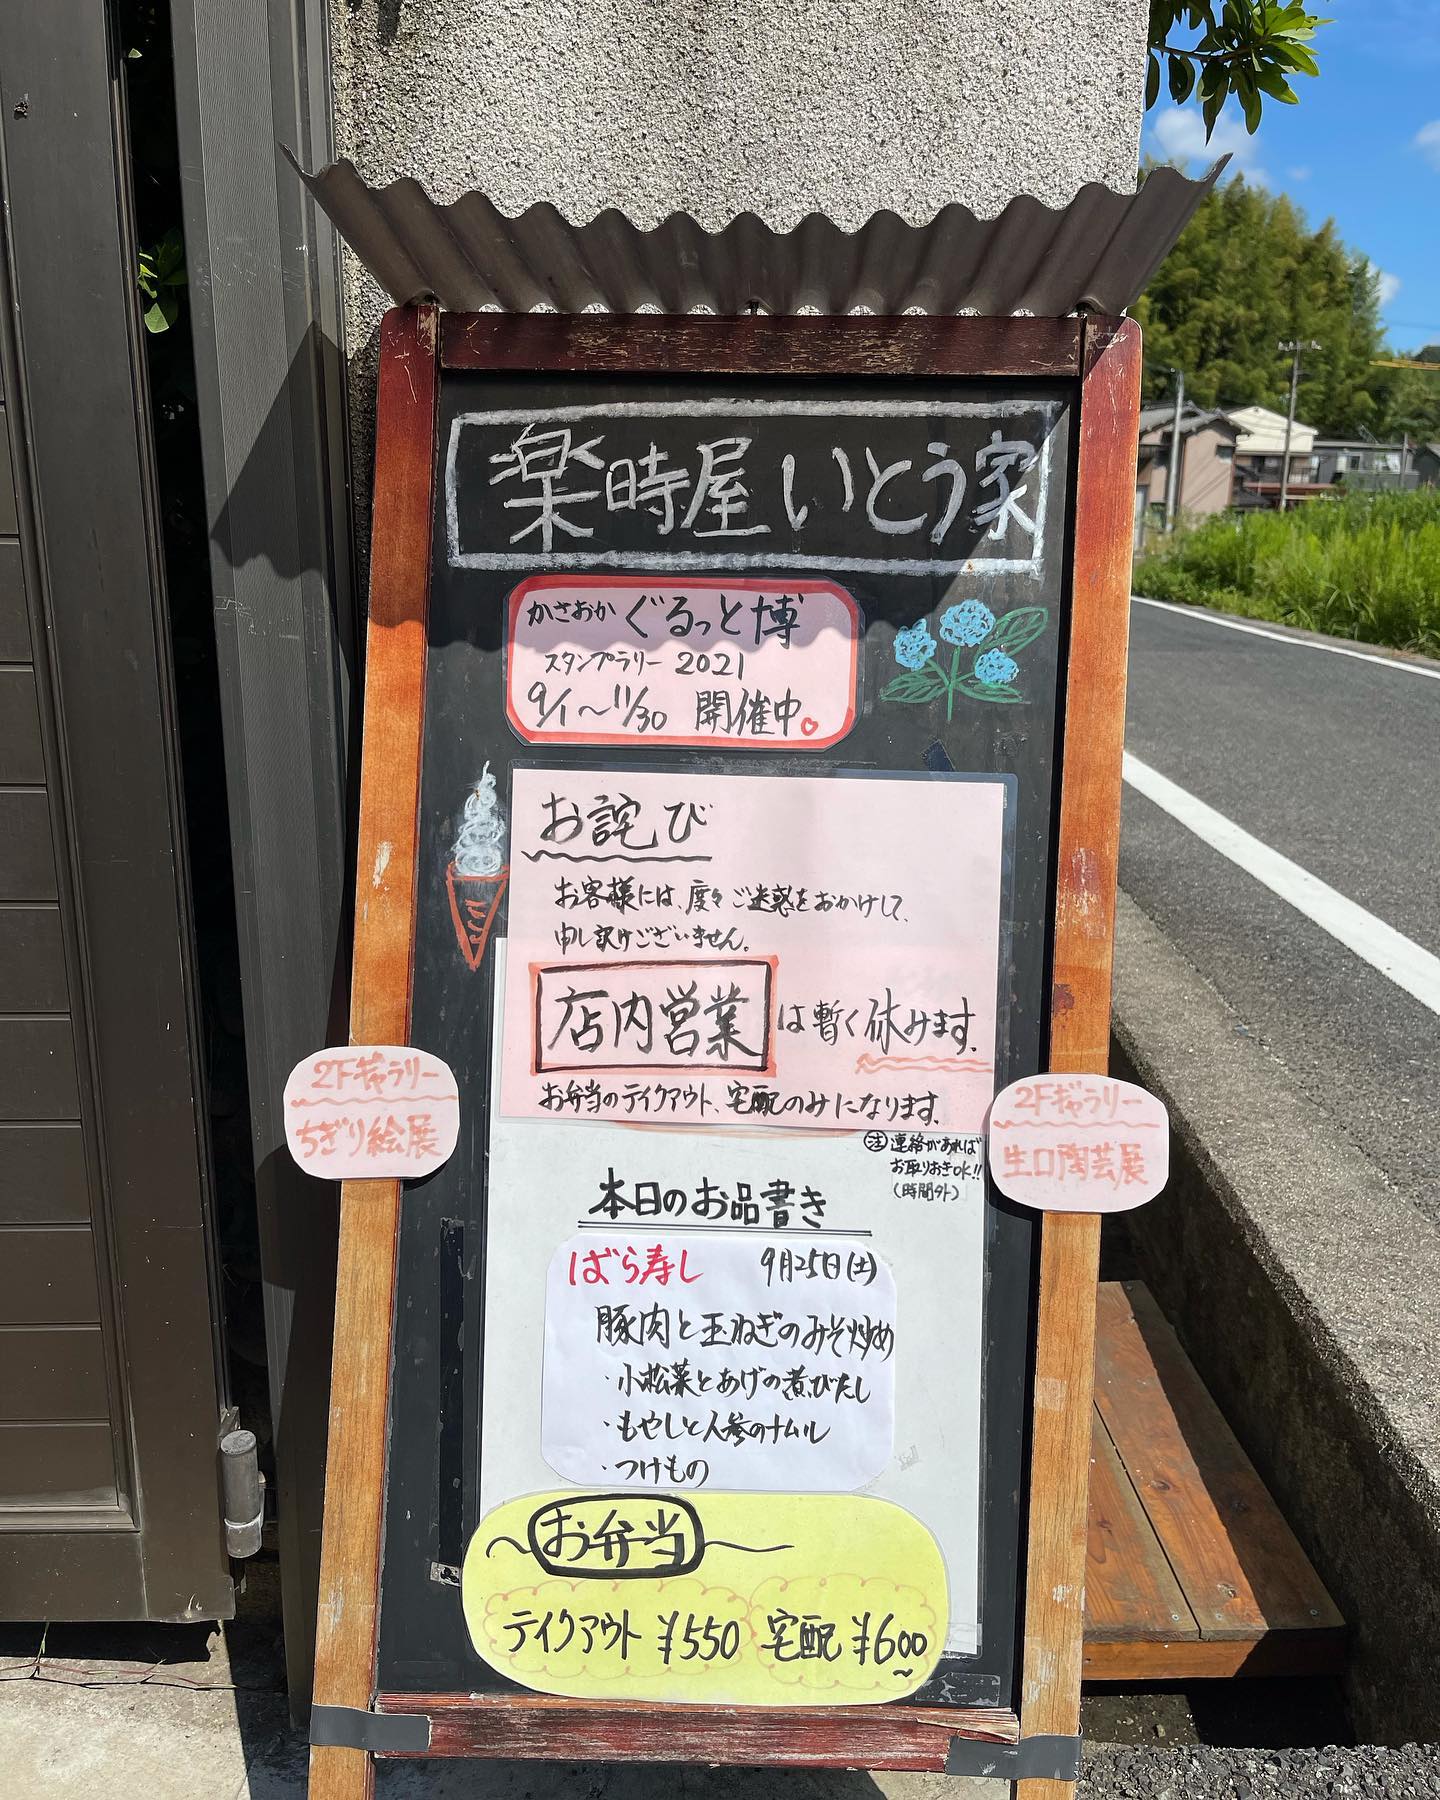 楽時屋いとう家
かさおか ぐるっと博
スタンプラリー 2021
9/1〜11/30 開催中。
お詫び
お客様には、度々ご迷惑をおかけして、
申し訳けございません。
店内営業は暫く休みます。
お弁当のテイクアウト、宅配のみになります。
㊟連絡があれば
お取りおきOK!!
(時間外)
2Fギャラリー
ちぎり絵展
2Fギャラリー
生口陶芸展
本日のお品書き
ばら寿し 9月25日(土)
豚肉と玉ねぎのみそ炒め
・小松菜とあげの煮びたし
・もやしと人参のナムル
・つけもの
〜お弁当〜
テイクアウト ¥550 宅配 ¥600〜